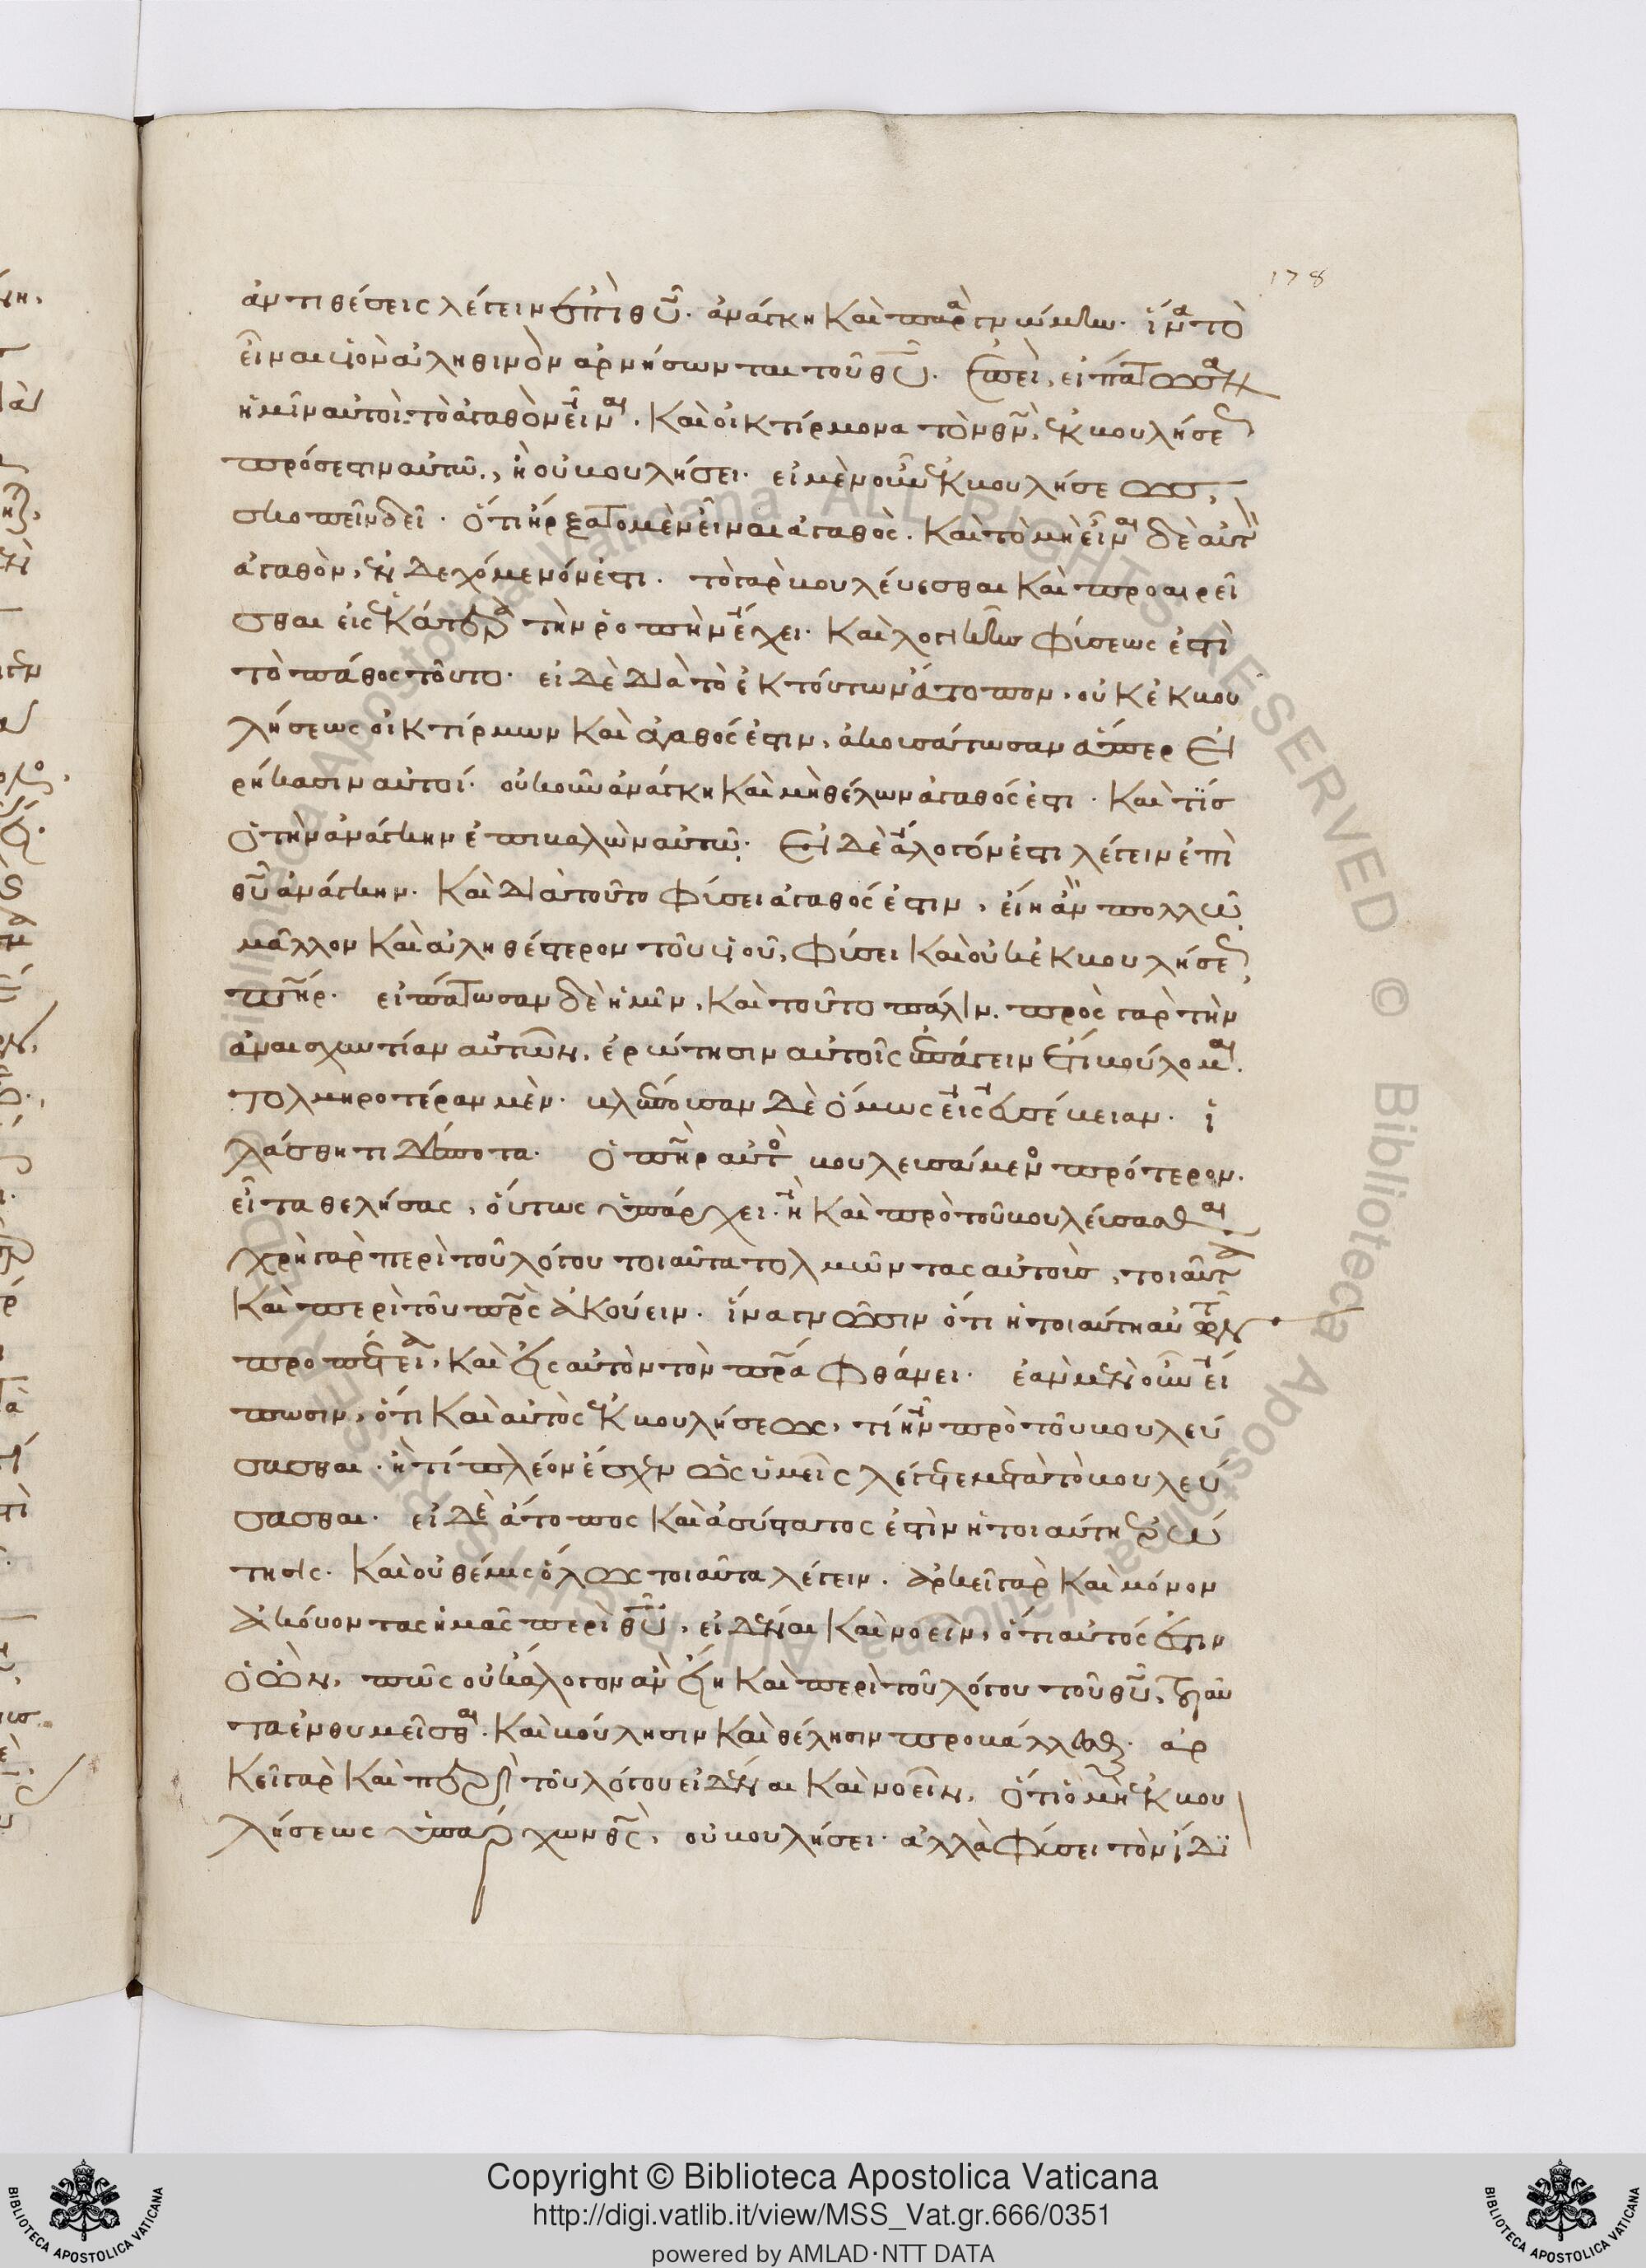 178
ἀντιθέσεις λέγειν ἐπὶ θυ. ἀνάγκη καὶ παρὰ γνώμην. ἵνα τὸ
εἶναι υἱὸν ἀληθινὸν ἀρνήσωνται τοῦ θυ. ἐπεὶ, εἰπάτωσαν
ἡμῖν αὐτοὶ. τὸ ἀγαθὸν εἶναι. καὶ οἰκτίρμονα τὸν θν, ἐκ βουλήσεως
πρόσεστιν αὐτῶ, ἢ οὐ βουλήσει. εἰ μὲν οὖν ἐκ βουλήσεως,
σκοπεῖν δεῖ. ὅτι ἤρξατο μὲν εἶναι ἀγαθὸς. καὶ τὸ μὴ εἶναι δὲ αὐτὸν
ἀγαθὸν, ἐνδεχόμενόν ἐστι. τὸ γὰρ βουλέυεσθαι καὶ προαιρεῖ
σθαι εἰς ἑκάτερα τὴν ῥοπὴν ἔχει. καὶ λογικῆς φύσεως ἐστὶ
τὸ πάθος τοῦτο. εἰ δὲ διὰ τὸ ἐκ τούτων ἄτοπον, οὐκ ἐκ βου
λήσεως οἰκτίρμων καὶ ἀγαθός ἐστιν, ἀκουσάτωσαν ἅπερ εἰ
ρήκασιν αὐτοί. οὐκοῦν ἀνάγκη καὶ μὴ θέλων ἀγαθός ἐστι. καὶ τίς
ὁ τὴν ἀνάγκην ἐπιβαλὼν αὐτῶ. εἰ δὲ ἄλογόν ἐστι λέγειν ἐπὶ
θυ ἀνάγκην. καὶ διὰ τοῦτο φύσει ἀγαθός ἐστιν, εἴη ἂν πολλῶ
μᾶλλον καὶ ἀληθέστερον τοῦ υἱοῦ, φύσει καὶ οὐκ ἐκ βουλήσεως
πηρ. εἰπάτωσαν δὲ ἡμῖν, καὶ τοῦτο πάλιν. πρὸς γὰρ τὴν
ἀναισχυντίαν αὐτῶν, ἐρώτησιν αὐτοῖς ἐπάγειν ἔτι βούλομαι.
τολμηροτέραν μὲν. βλέπουσαν δὲ ὅμως εἰς εὐσέβειαν. ἱ
λάσθητι δέσποτα. ὁ πηρ αὐτὸς βουλευσάμενος πρότερον.
εἶτα θελήσας, οὕτως ὑπάρχει. ἢ καὶ πρὸ τοῦ βουλεύσασθαι
χρὴ γὰρ περὶ τοῦ λόγου τοιαῦτα τολμῶντας αὐτοὺς, τοιαῦτα
καὶ περὶ τοῦ πρς ἀκούειν. ἵνα γνῶσιν ὅτι ἡ τοιαύτη αὐτῶν
προπέτεια, καὶ εἰς αὐτὸν τὸν πρα φθάνει. ἐὰν μὲν οὖν εἴ
πωσιν, ὅτι καὶ αὐτὸς ἐκ βουλήσεως, τί ἦν πρὸ τοῦ βουλεύ
σασθαι. ἢ τί πλέον ἔσχεν ὡς ὑμεῖς λέγετε μετὰ τὸ βουλεύ
σασθαι. εἰ δὲ ἄτοπος καὶ ἀσύστατος ἐστὶν ἡ τοιαύτη ἐρώ
τησις. καὶ οὐ θέμις ὅλως τοιαῦτα λέγειν. ἀρκεῖ γὰρ καὶ μόνον
ἀκούοντας ἡμᾶς περὶ θυ, εἰδέναι καὶ νοεῖν, ὅτι αὐτός ἐστιν
ὁ ὢν, πῶς οὐκ ἄλογον ἂν εἴη καὶ περὶ τοῦ λόγου τοῦ θυ, τοιαῦ
τα ἐνθυμεῖσθαι. καὶ βούλησιν καὶ θέλησιν προβάλλεσθαι. ἀρ
κεῖ γὰρ καὶ περὶ τοῦ λόγου εἰδέναι καὶ νοεῖν, ὅτι ὁ μὴ ἐκ βου
λήσεως ὑπάρχων θς, οὐ βουλήσει. ἀλλὰ φύσει τὸν ἴδι
Copyright © Biblioteca Apostolica Vaticana
http://digi.vatlib.it/view/MSS_Vat.gr.666/0351
powered by AMLAD·NTT DATA